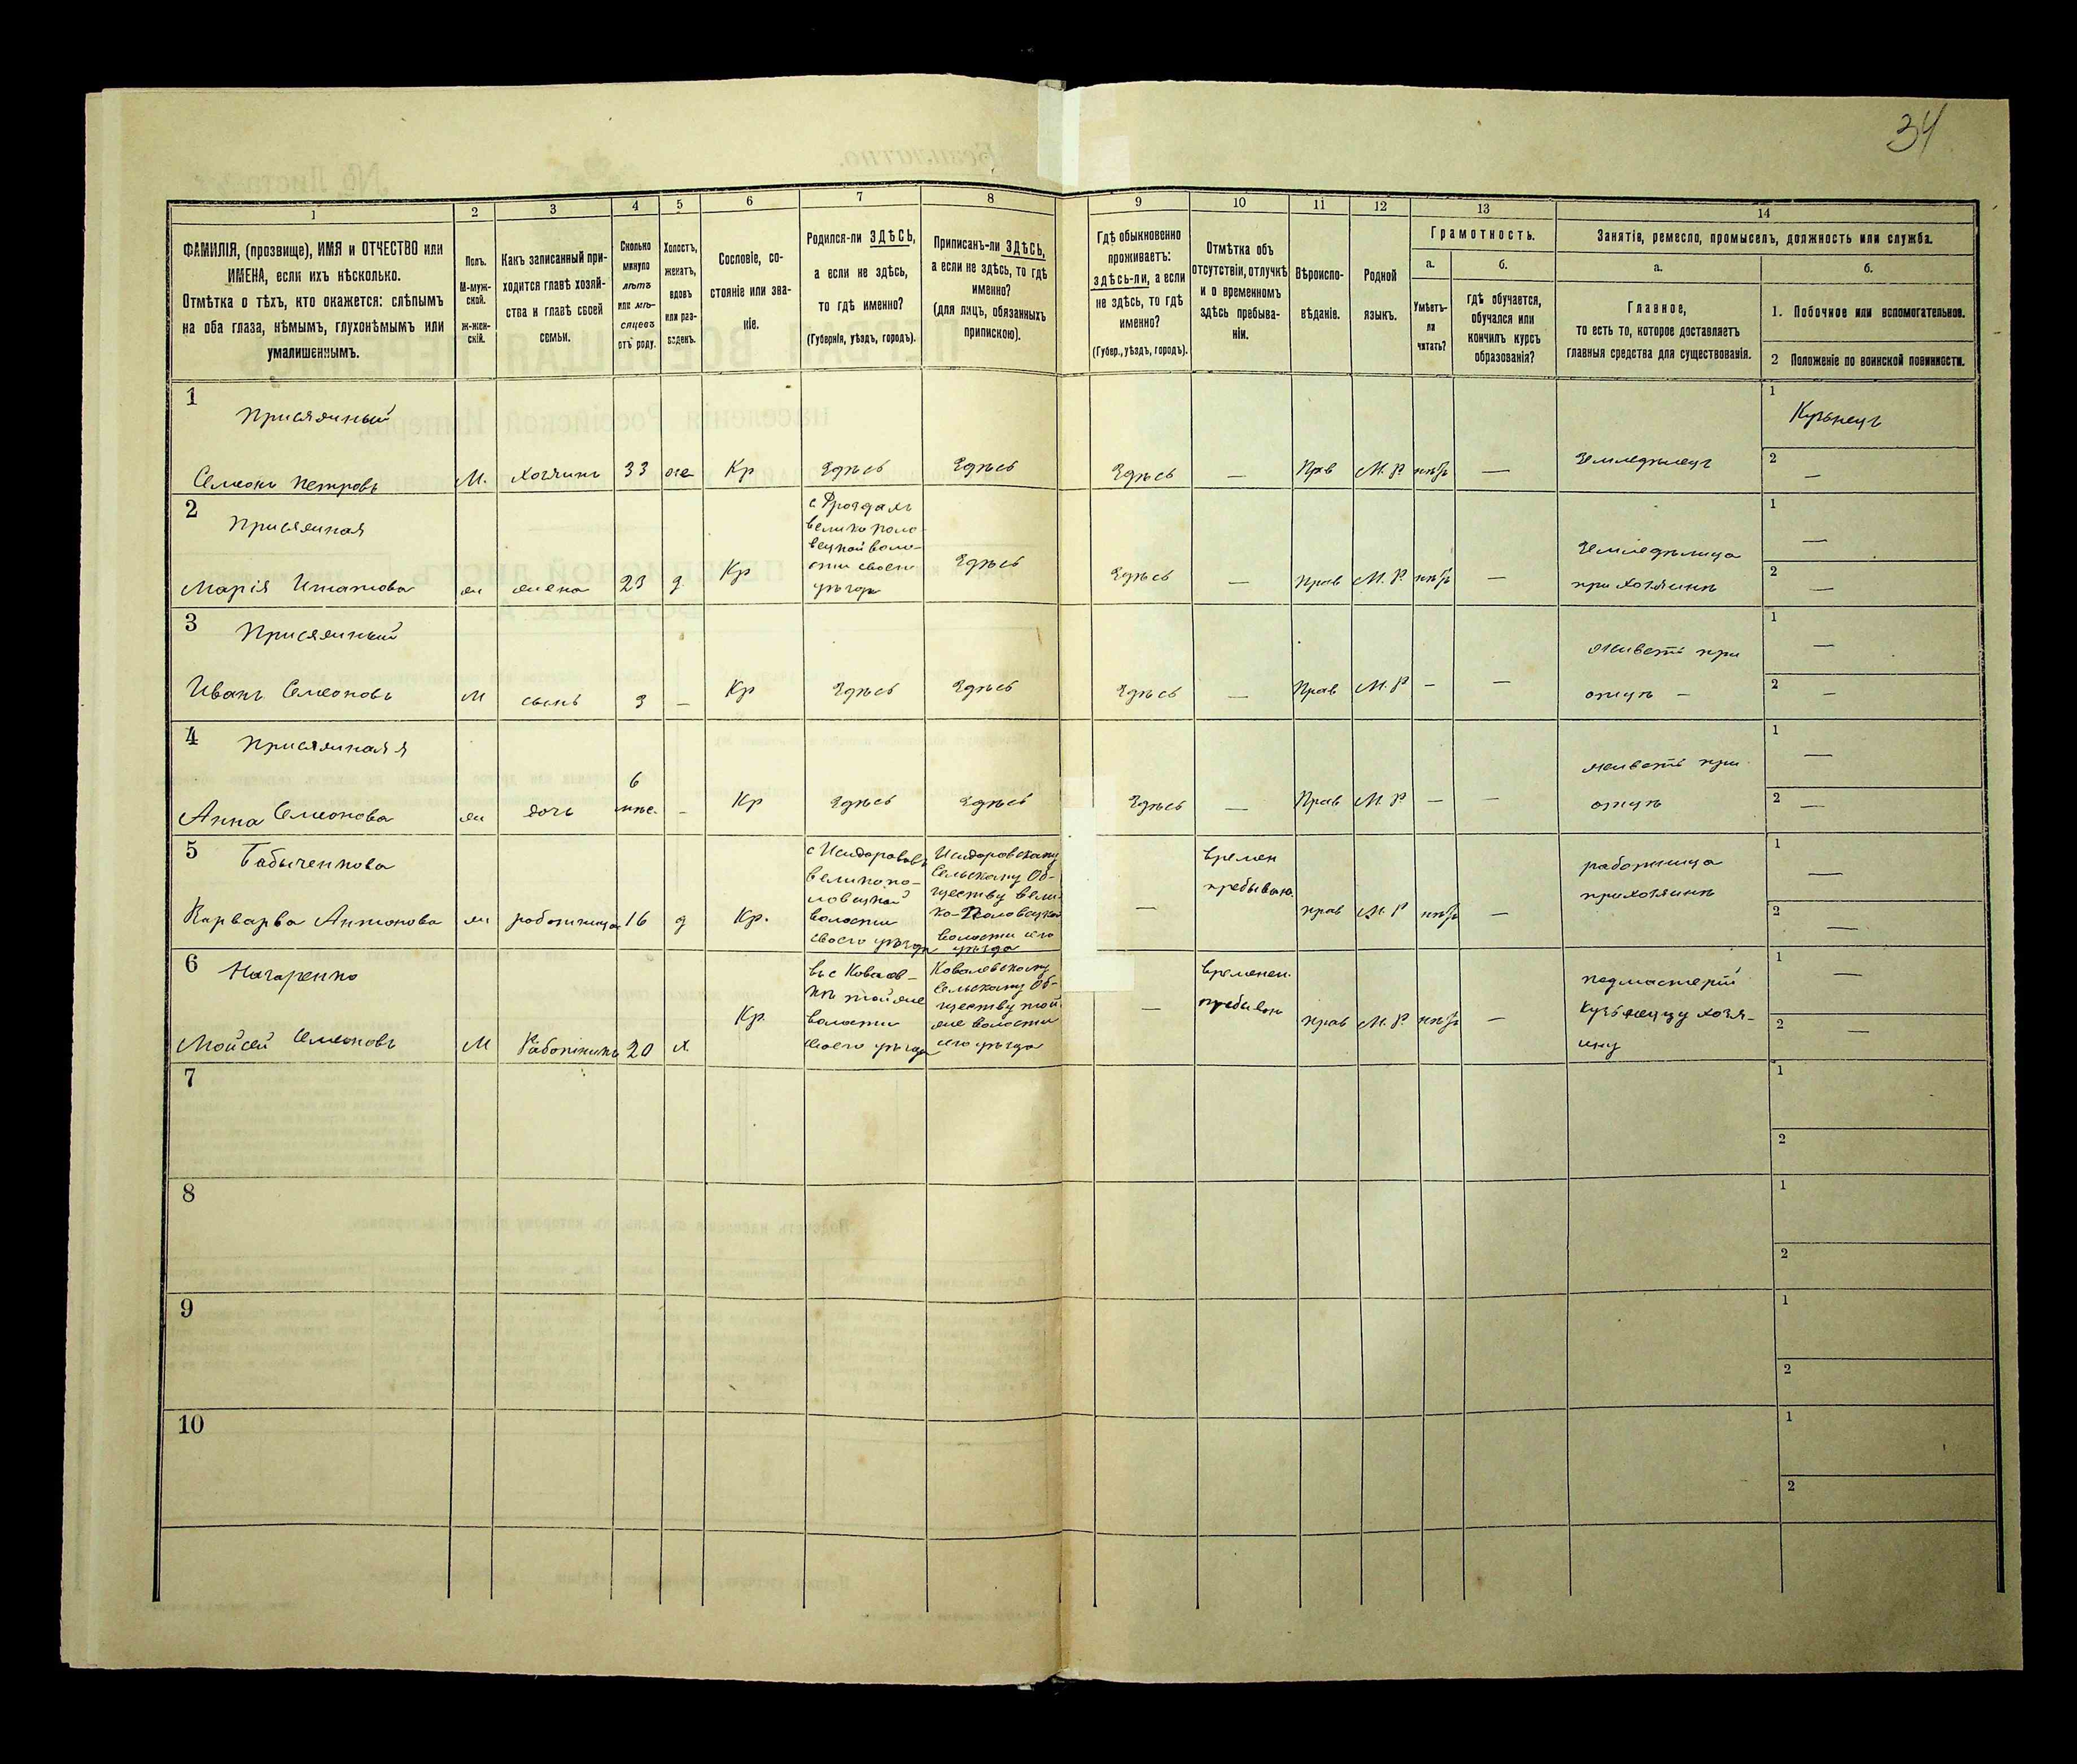 34
1
2
3
4
5
6
7
8
9
10
11
12
13
14
ФАМИЛІЯ, (прозвище), ИМЯ и ОТЧЕСТВО или
ИМЕНА, если ихъ нѣсколько.
Отмѣтка о тѣхъ, кто окажется: слѣпымъ
на оба глаза, нѣмымъ, глухонѣмымъ или
умалишеннымъ.
Полъ.
М-муж-
ской.
Ж-жен-
скій.
Какъ записанный при-
ходится главѣ хозяй-
ства и главѣ своей
семьи.
Сколько
минуло
лѣтъ
или мѣ-
сяцевъ
отъ роду.
Холостъ,
женатъ,
вдовъ
или раз-
веденъ.
Сословіе, со-
стояніе или зва-
ніе.
Родился-ли ЗДѢСЬ,
а если не здѣсь,
то гдѣ именно?
(Губернія, уѣздъ, городъ).
Приписанъ-ли ЗДѢСЬ,
а если не здѣсь, то гдѣ
именно?
(для лицъ, обязанныхъ
припискою).
Гдѣ обыкновенно
проживаетъ:
здѣсь-ли, а если
не здѣсь, то гдѣ
именно?
(Губер., уѣздъ, городъ).
Отмѣтка объ
отсутствіи, отлучкѣ
и о временномъ
здѣсь пребыва-
ніи.
Вѣроиспо-
вѣданіе.
Родной
языкъ.
Грамотность.
а.
Умѣетъ-
ли
читать?
б.
гдѣ обучается,
обучался или
кончилъ курсъ
образованія?
Занятіе, ремесло, промыселъ, должность или служба.
а.
Главное,
то есть то, которое доставляетъ
главныя средства для существованія.
б.
1. Побочное или вспомогательное.
2 Положеніе по воинской повинности.
1 Присяжный
Семенъ Петровъ М. хозяинъ 33 же Кр Здѣсь Здѣсь Здѣсь — Прв М. Р нѣтъ — Земледѣлецъ
1 Кузнецъ
2 —
2 Присяжная
Марія Игнатова ж жена 23 з Кр
с Дрозда хъ
велико поло-
вецкой воло-
сти своего
уѣзда
Здѣсь Здѣсь — Прав М. Р. нѣтъ —
Земледѣлица
при хозяинѣ
1 —
2 —
3 Присяжный
Иванъ Семеновъ М сынъ 3 — Кр Здѣсь Здѣсь Здѣсь — Прав М. Р — —
живетъ при
отцѣ —
1 —
2 —
4 Присяжная
Анна Семенова ж дочь
6
мѣс.
- Кр Здѣсь Здѣсь Здѣсь — Прав М. Р — —
живетъ при
отцѣ
1 —
2 —
5 Бабыченкова
Варварва Антонова ж работница 16 д Кр.
великопо-
ловецкой
волости
своего уѣзда
Исидоровскому
Сельскому Об-
ществу вели-
ко-Половецкой
волости его
уѣзда
—
времен
пребываю.
прав М. Р нѣтъ —
работница
при хозяинѣ
1 —
2 —
6 Назаренко
Мойсей Семеновъ М Работникъ 20 х. Кр.
въ с Ковалев-
кѣ той же
волости
своего уѣзда
Ковалевскому
Сельскому Об-
ществу той
же волости
его уѣзда
—
временен.
пребываю
прав М. Р. нѣтъ —
подмастерій
Кузнецу хозя-
ину
1 —
2 —
7
1
2
8
1
2
9
1
2
10
1
2